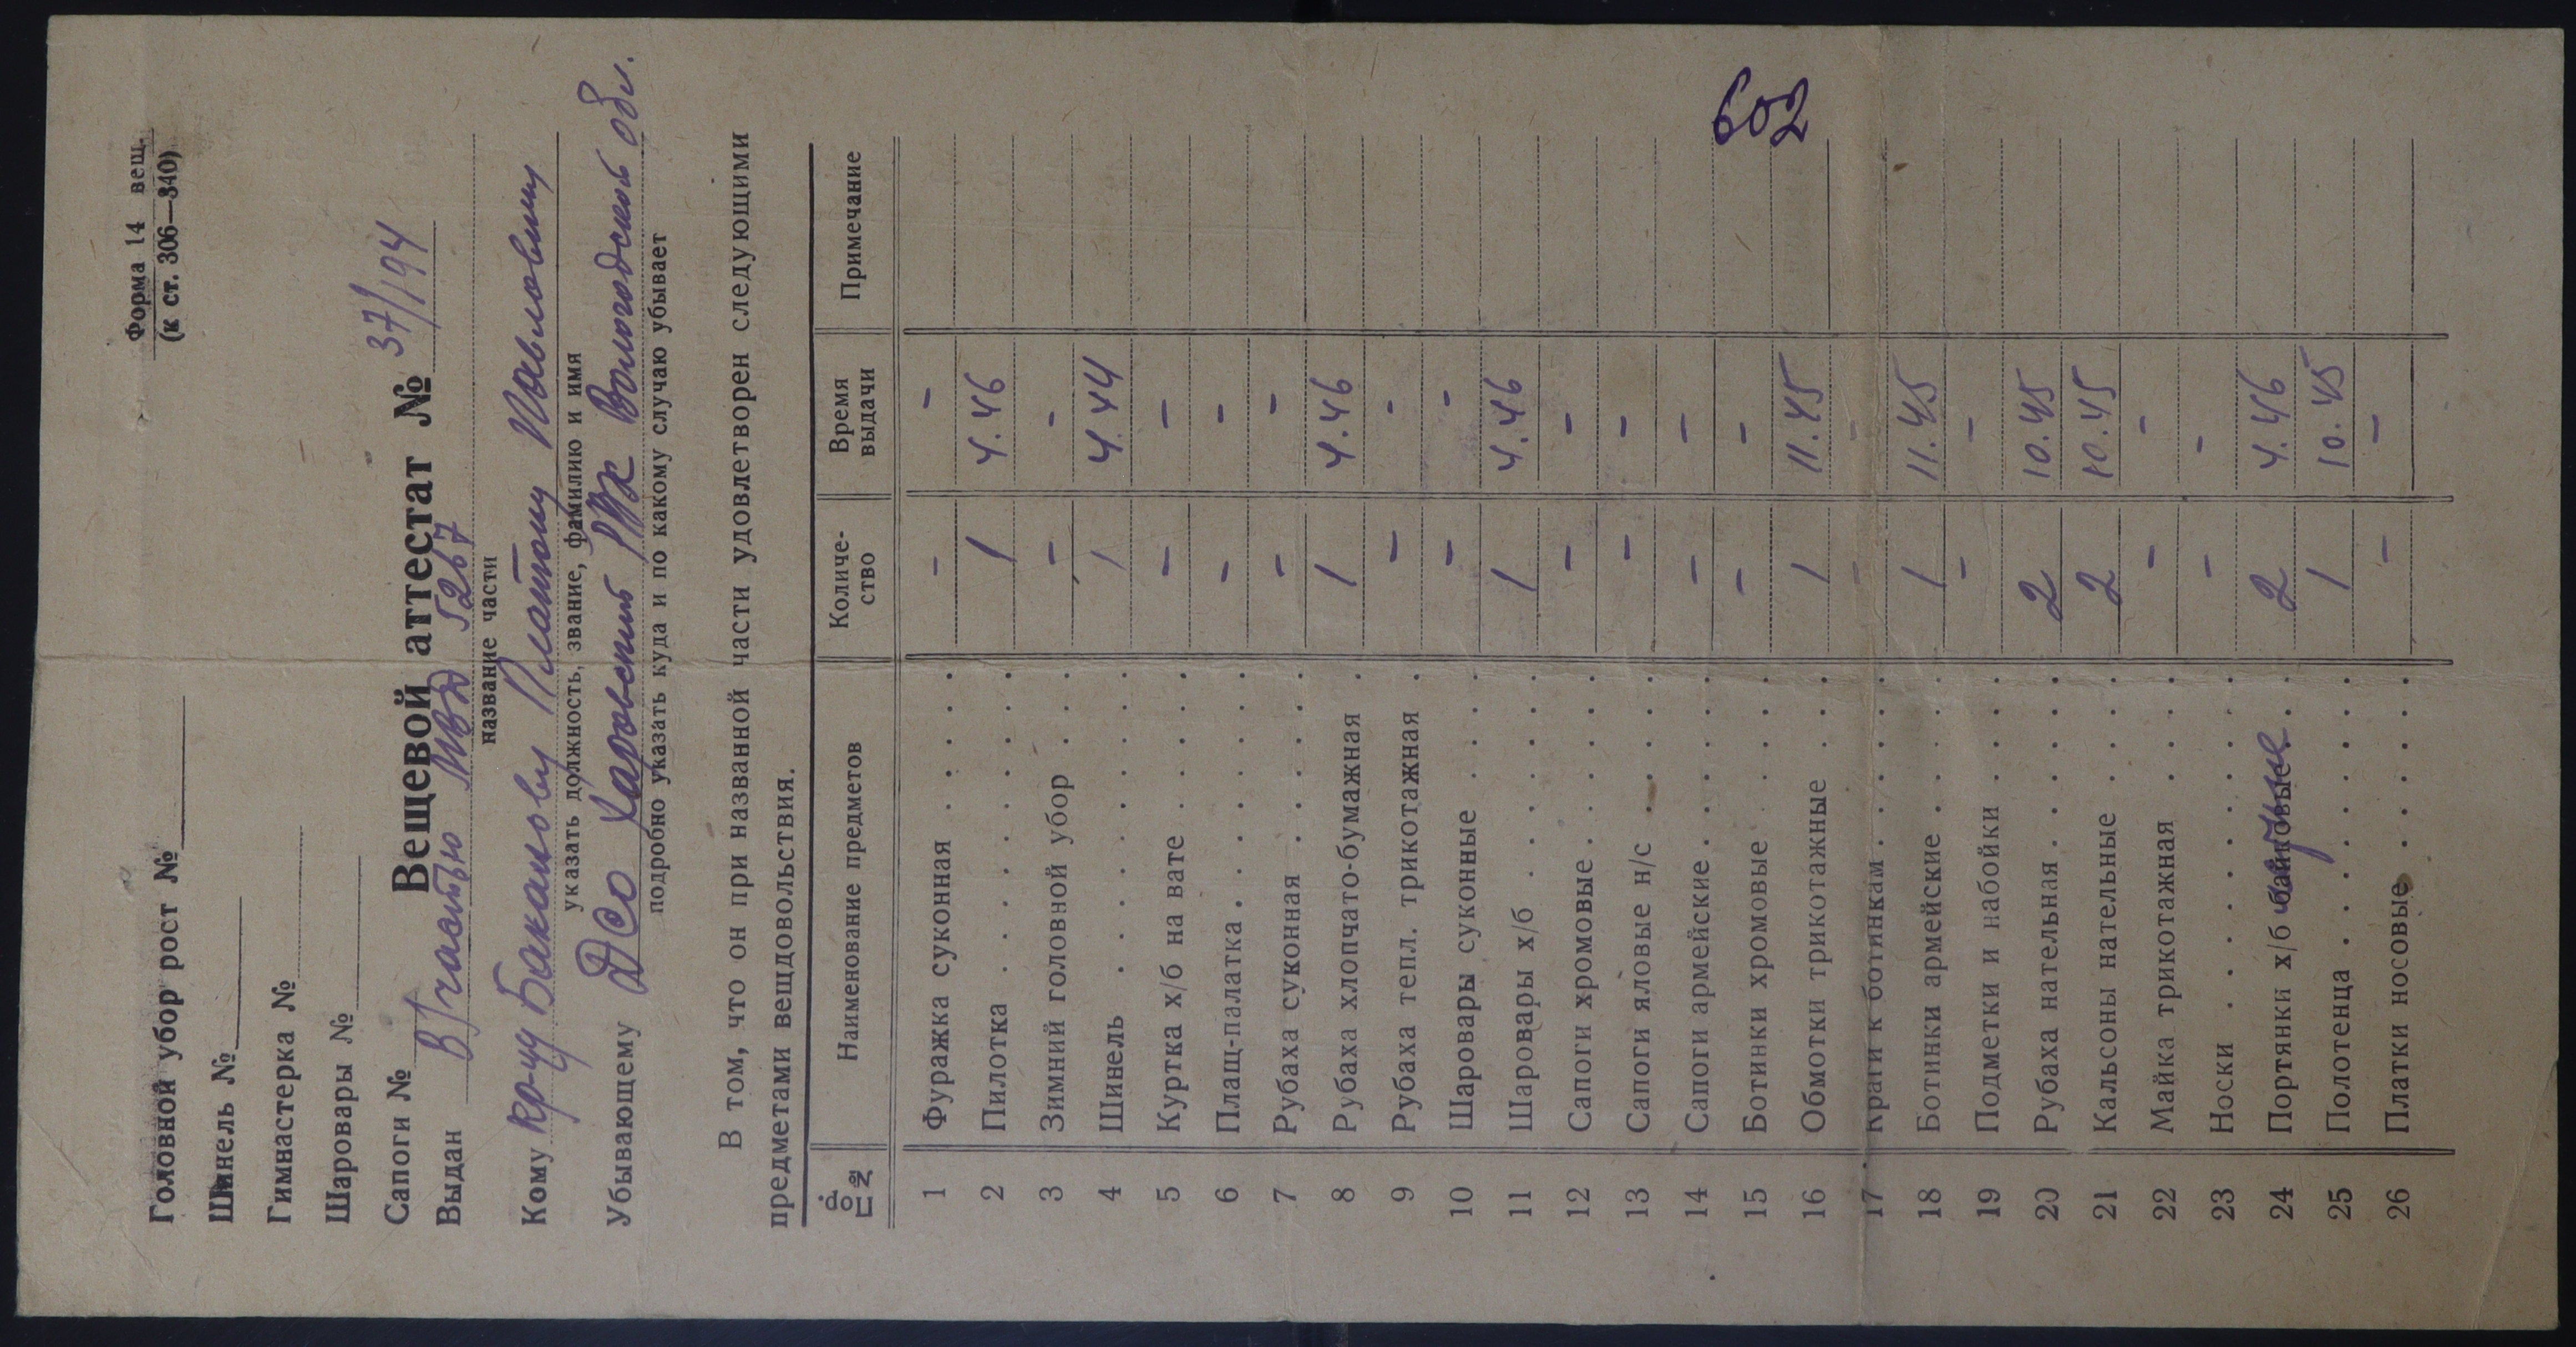 Форма 14 вещ.
(к ст. 306—340)
Головной убор рост №
Шинель №
Гимнастерка №
Шаровары №
Сапоги №
Вещевой аттестат № 37/194
Выдан В/частью МВД 5267
название части
Кому кр-цу Баканову Платону Павловичу
указать должность, звание, фамилию и имя
Убывающему ДСО Харовский РВК Вологодской обл.
подробно указать куда и по какому случаю убывает
В том, что он при названной части удовлетворен следующими
предметами вещдовольствия.
№ по пр. Наименование предметов Количе-ство Время выдачи Примечание
1 Фуражка суконная . . . . . - -
2 Пилотка . . . . . . . 1 4.46
3 Зимний головной убор . . . - -
4 Шинель . . . . . . . 1 4.44
5 Куртка х/б на вате . . . . . - -
6 Плащ-палатка . . . . . . - -
7 Рубаха суконная . . . . . - -
8 Рубаха хлопчато-бумажная . 1 4.46
9 Рубаха тепл. трикотажная . - -
10 Шаровары суконные . . . . - -
11 Шаровары х/б . . . . . . 1 4.46
12 Сапоги хромовые . . . . . - -
13 Сапоги яловые н/с . . . . . - -
14 Сапоги армейские . . . . . - -
15 Ботинки хромовые . . . . - -
16 Обмотки трикотажные . . . 1 11.45
17 Краги к ботинкам . . . . . - -
18 Ботинки армейские . . . . 1 11.45
19 Подметки и набойки . . . . - -
20 Рубаха нательная . . . . . 2 10.45
21 Кальсоны нательные . . . . 2 10.45
22 Майка трикотажная . . . . - -
23 Носки . . . . . . . . - -
24 Портянки х/б байковые . 2 4.46
25 Полотенца . . . . . . . 1 10.45
26 Платки носовые . . . . . . - -
602